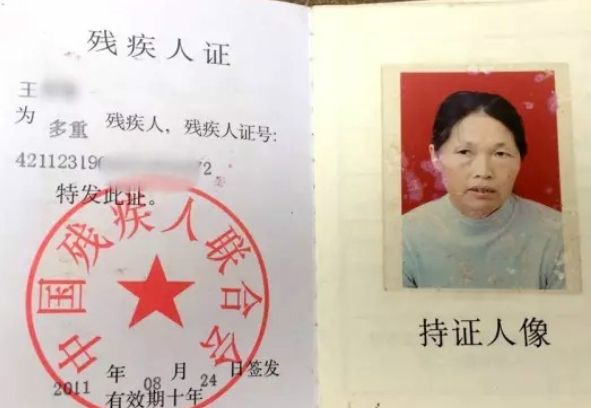 残疾人证
王
为 多重 残疾人，残疾人证号：
42112319 2，
特发此证。
中国残疾人联合会
2011 年 08 月 24 日签发
有效期十年
持证人像